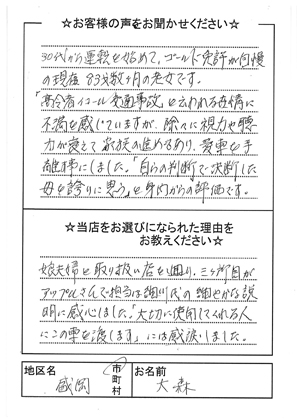 ☆お客様の声をお聞かせください☆
30代から運転を始めて、ゴールド免許が自慢
の現在83才数ヶ月の老女です。
「高令者イコール交通事故」と云われる世情に
不満を感じていますが、除々に視力や聴
力が衰えて家族の進めもあり、愛車を手
離す事にしました。「自らの判断で決断した
母を誇りに思う」と身内からの評価です。
☆当店をお選びになられた理由を
お教えください☆
娘夫婦と取り扱い店を廻り、三ヶ所目が
アップルさんで担当は細川氏の細やかな説
明に感心しました。「大切に使用してくれる人
にこの車を渡します」には感涙しました。
地区名 盛岡 市町村 お名前 大森